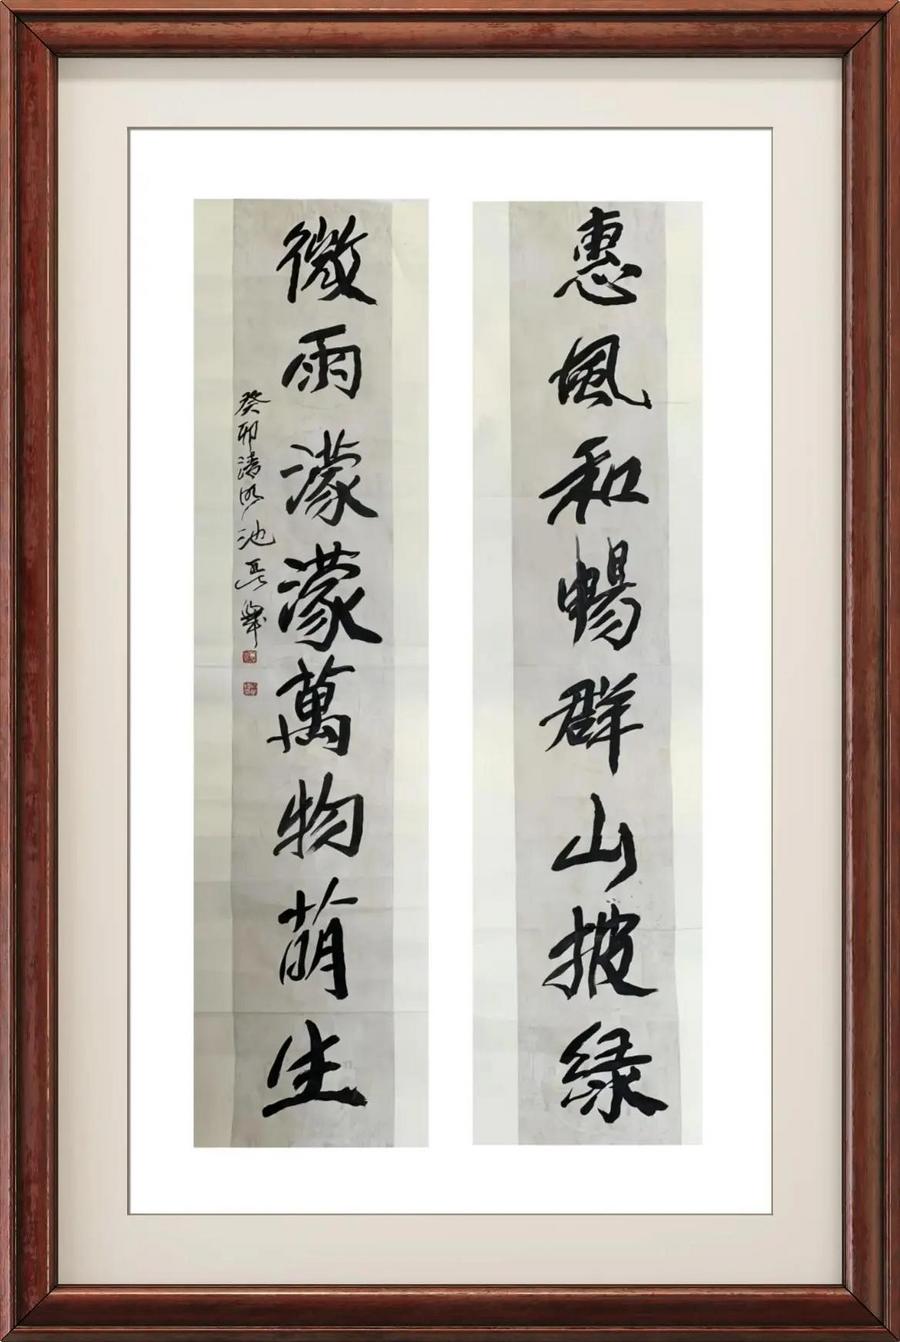 惠風和暢群山披绿
微雨濛濛萬物萌生
癸卯清明池